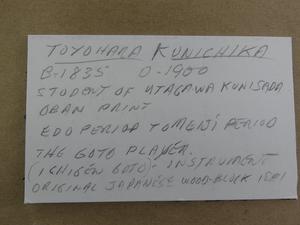 TOYOHARA KUNICHIKA
B-1835 D-1900
STUDENT OF UTAGAWA KUNISADA
OBAN PRINT
EDO PERIOD TO MEIJI PERIOD
THE GOTO PLAYER.
(ICHIGEN GOTO)- INSTRUMENT
ORIGINAL JAPANESE WOOD-BLOCK